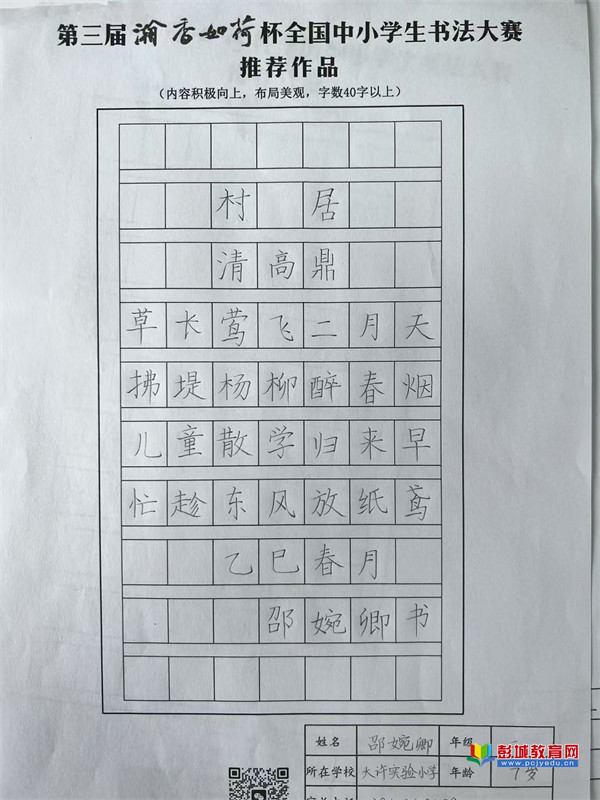 第三届瀚香如荷杯全国中小学生书法大赛
推荐作品
（内容积极向上，布局美观，字数40字以上）
村居
清高鼎
草长莺飞二月天
拂堤杨柳醉春烟
儿童散学归来早
忙趁东风放纸鸢
乙巳春月
邵婉卿书
姓名 邵婉卿 年级
所在学校 大许实验小学 年龄 7岁
彭城教育网
www.pcjyedu.cn